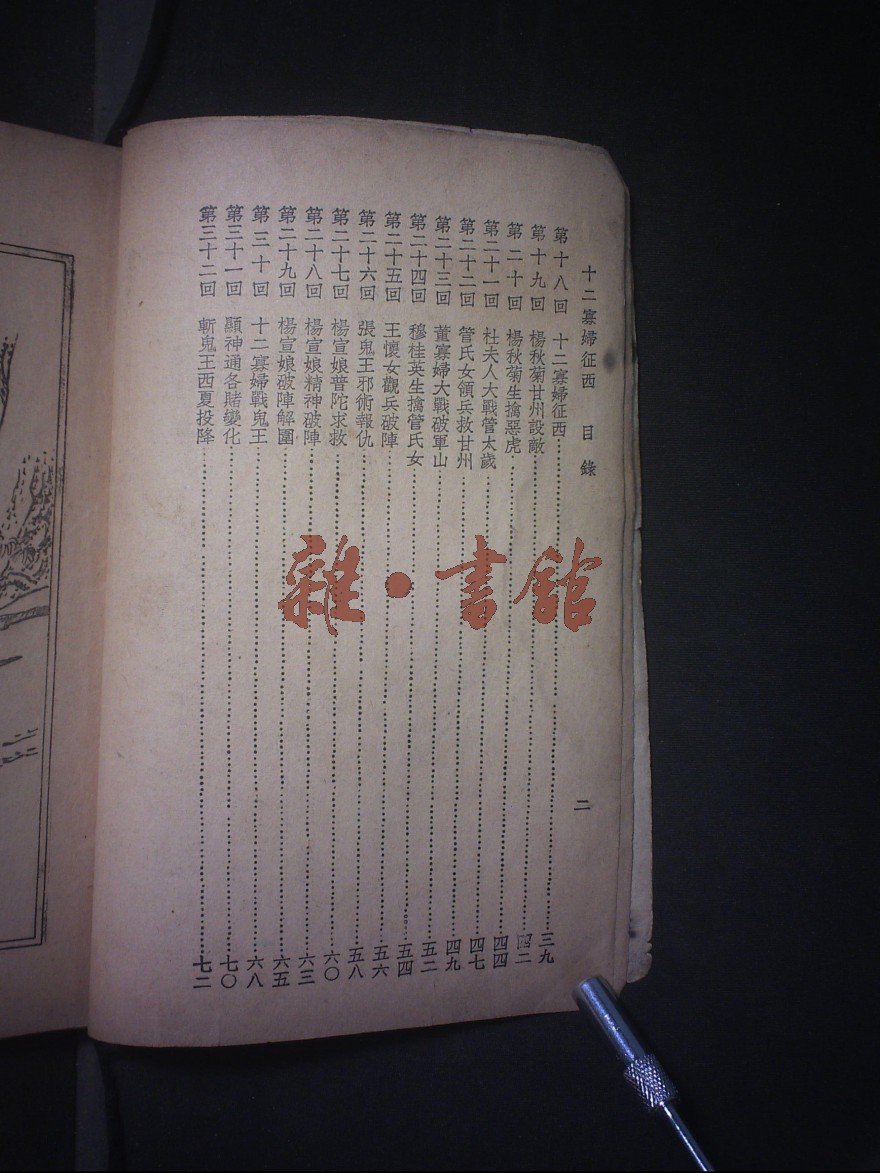 十二寡婦征西 目錄 二
第十八回 十二寡婦征西 三九
第十九回 楊秋菊甘州設敵 四二
第二十回 楊秋菊生擒惡虎 四四
第二十一回 杜夫人大戰管太歲 四七
第二十二回 管氏女領兵救甘州 四九
第二十三回 董寡婦大戰破軍山 五二
第二十四回 穆桂英生擒管氏女 五四
第二十五回 王懷女觀兵破陣 五六
第二十六回 張鬼王邪術報仇 五八
第二十七回 楊宣娘普陀求救 六〇
第二十八回 楊宣娘精神破陣 六三
第二十九回 楊宣娘破陣解圍 六五
第三十回 十二寡婦戰鬼王 六八
第三十一回 顯神通各賭變化 七〇
第三十二回 斬鬼王西夏投降 七二
雜·書館